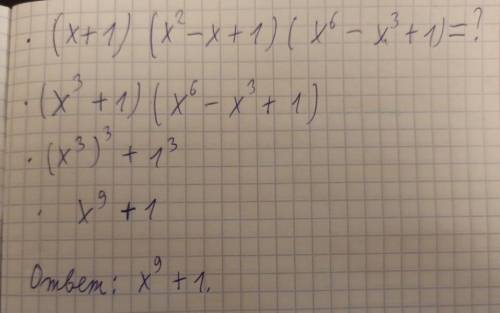 · (x+1) (x² - x + 1) (x⁶ - x³ + 1) = ?
· (x³ + 1) (x⁶ - x³ + 1)
· (x³)³ + 1³
· x⁹ + 1
Ответ: x⁹ + 1.